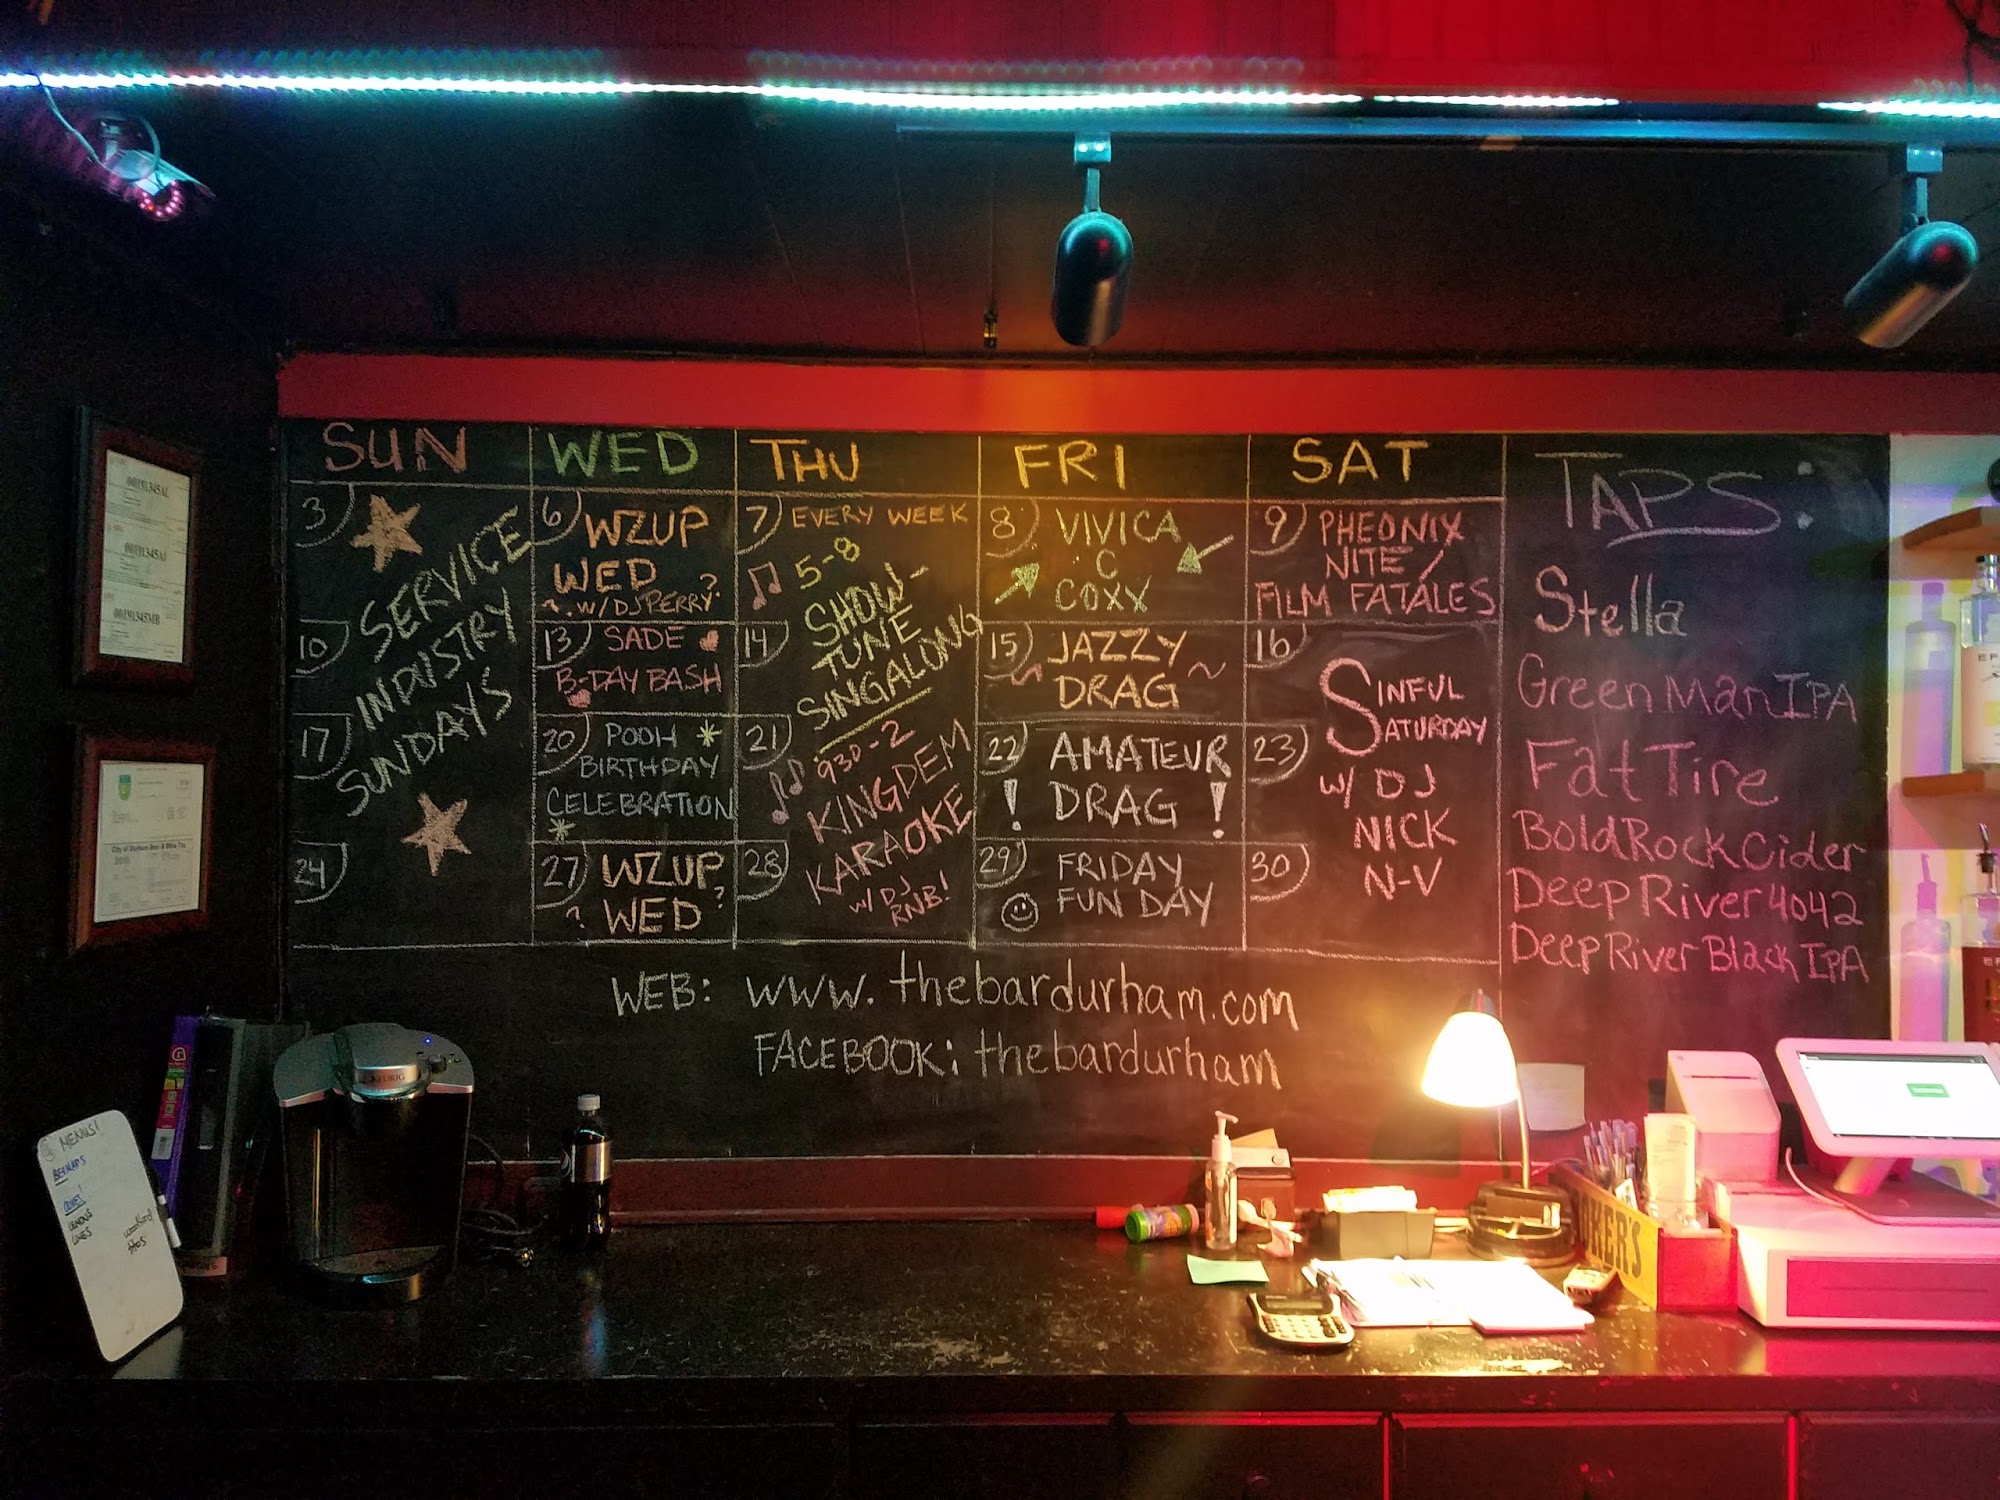 SUN
WED
THU
FRI
SAT
3
10
17
24
SERVICE
INDUSTRY
SUNDAYS
6
WZUP
WED
W/DJ PERRY?
13
SADE
B-DAY BASH
20
POOH
BIRTHDAY
CELEBRATION
27
WZUP
? WED ?
7
EVERY WEEK
5-8
SHOW-
TUNE
SINGALONG
14
21
930-2
KINGDEM
KARAOKE
W/ DJ
RNB!
28
8
VIVICA
C
COXX
15
JAZZY
~ DRAG ~
22
AMATEUR
! DRAG !
29
FRIDAY
FUN DAY
9
PHEONIX
NITE/
FILM FATALES
16
SINFUL
SATURDAY
23
W/ DJ
NICK
N-V
30
TAPS:
Stella
Green Man IPA
Fat Tire
Bold Rock Cider
Deep River 4042
Deep River Black IPA
WEB: www.thebardurham.com
FACEBOOK: thebardurham
00191345AL
00191345AJ
00191345MB
City of Durham Beer & Wine Tax
KEURIG
MENUS!
LEMONS
LIMES